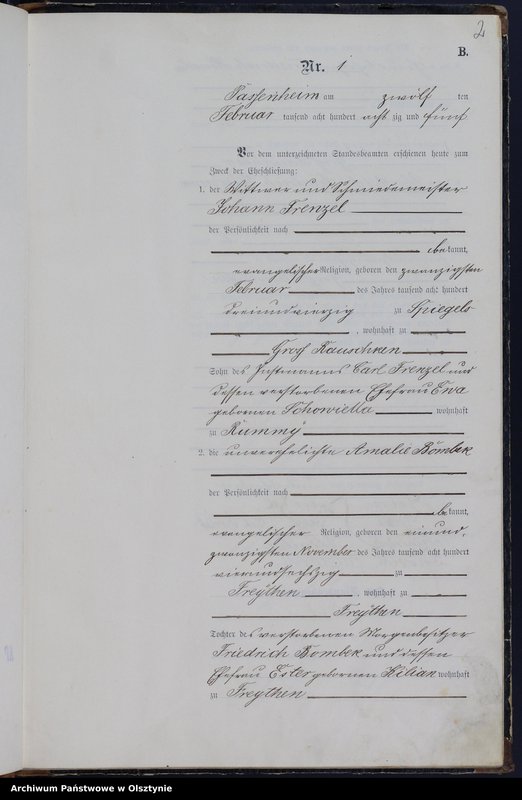 2
B.
Nr. 1
Passenheim am zwölf ten
Februar tausend acht hundert acht zig und fünf
Vor dem unterzeichneten Standesbeamten erschienen heute zum
Zweck der Eheschließung:
1. der Wittwer und Schmiedemeister
Johann Frenzel
der Persönlichkeit nach
bekannt,
evangelischer Religion, geboren den zwanzigsten
Februar des Jahres tausend acht hundert
dreiundvierzig zu Spiegels
, wohnhaft zu
Groß Rauschken
Sohn des Instmanns Carl Frenzel und
dessen verstorbenen Ehefrau Eva
gebornen Schowietta wohnhaft
zu Rummy
2. die unverehelichte Amalie Bömbek
der Persönlichkeit nach
bekannt,
evangelischer Religion, geboren den einund,
zwanzigsten November des Jahres tausend acht hundert
vierundsechszig zu
Freythen , wohnhaft zu
Freythen
Tochter des verstorbenen Morgenbesitzer
Friedrich Bombek und dessen
Ehefrau Ester gebornen Kilian wohnhaft
zu Freythen
Archiwum Państwowe w Olsztynie